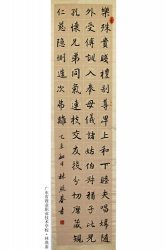 樂殊貴賤禮別尊卑上和下睦夫唱婦隨
外受傅訓入奉母儀諸姑伯叔猶子比兒
孔懷兄弟同氣連枝交友投分切磨箴規
仁慈隱惻造次弗離